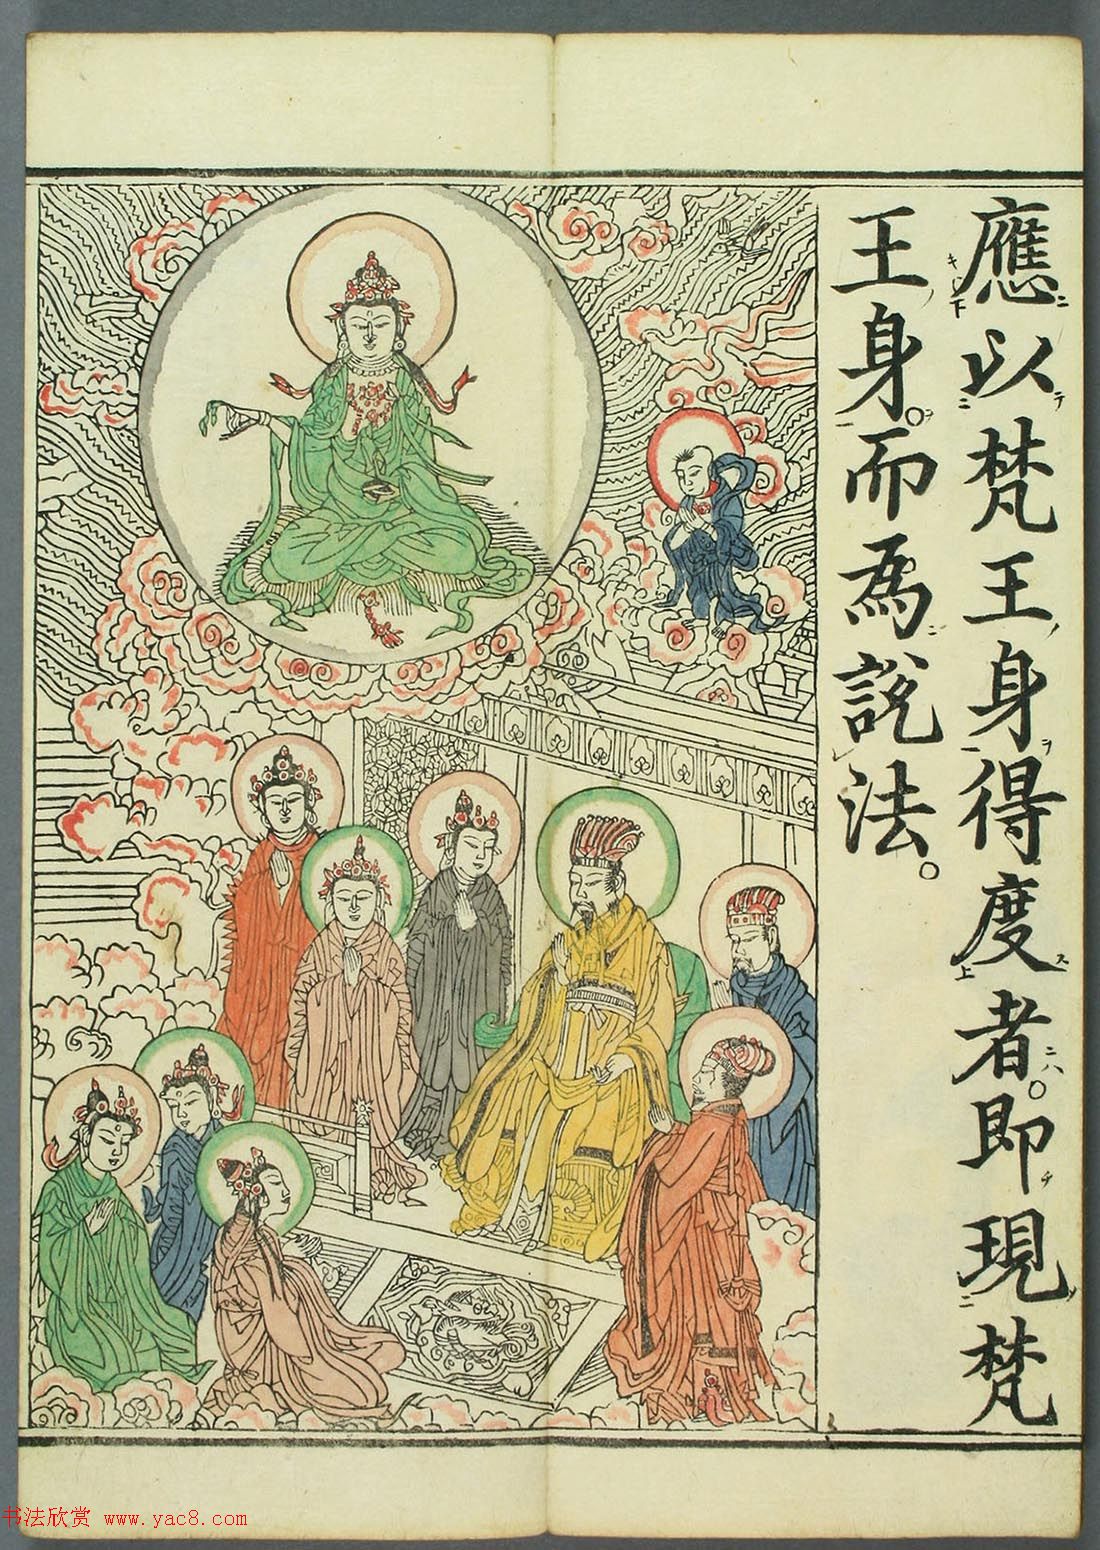 應以梵王身得度者。即現梵
王身。而為説法。
书法欣赏 www.yac8.com